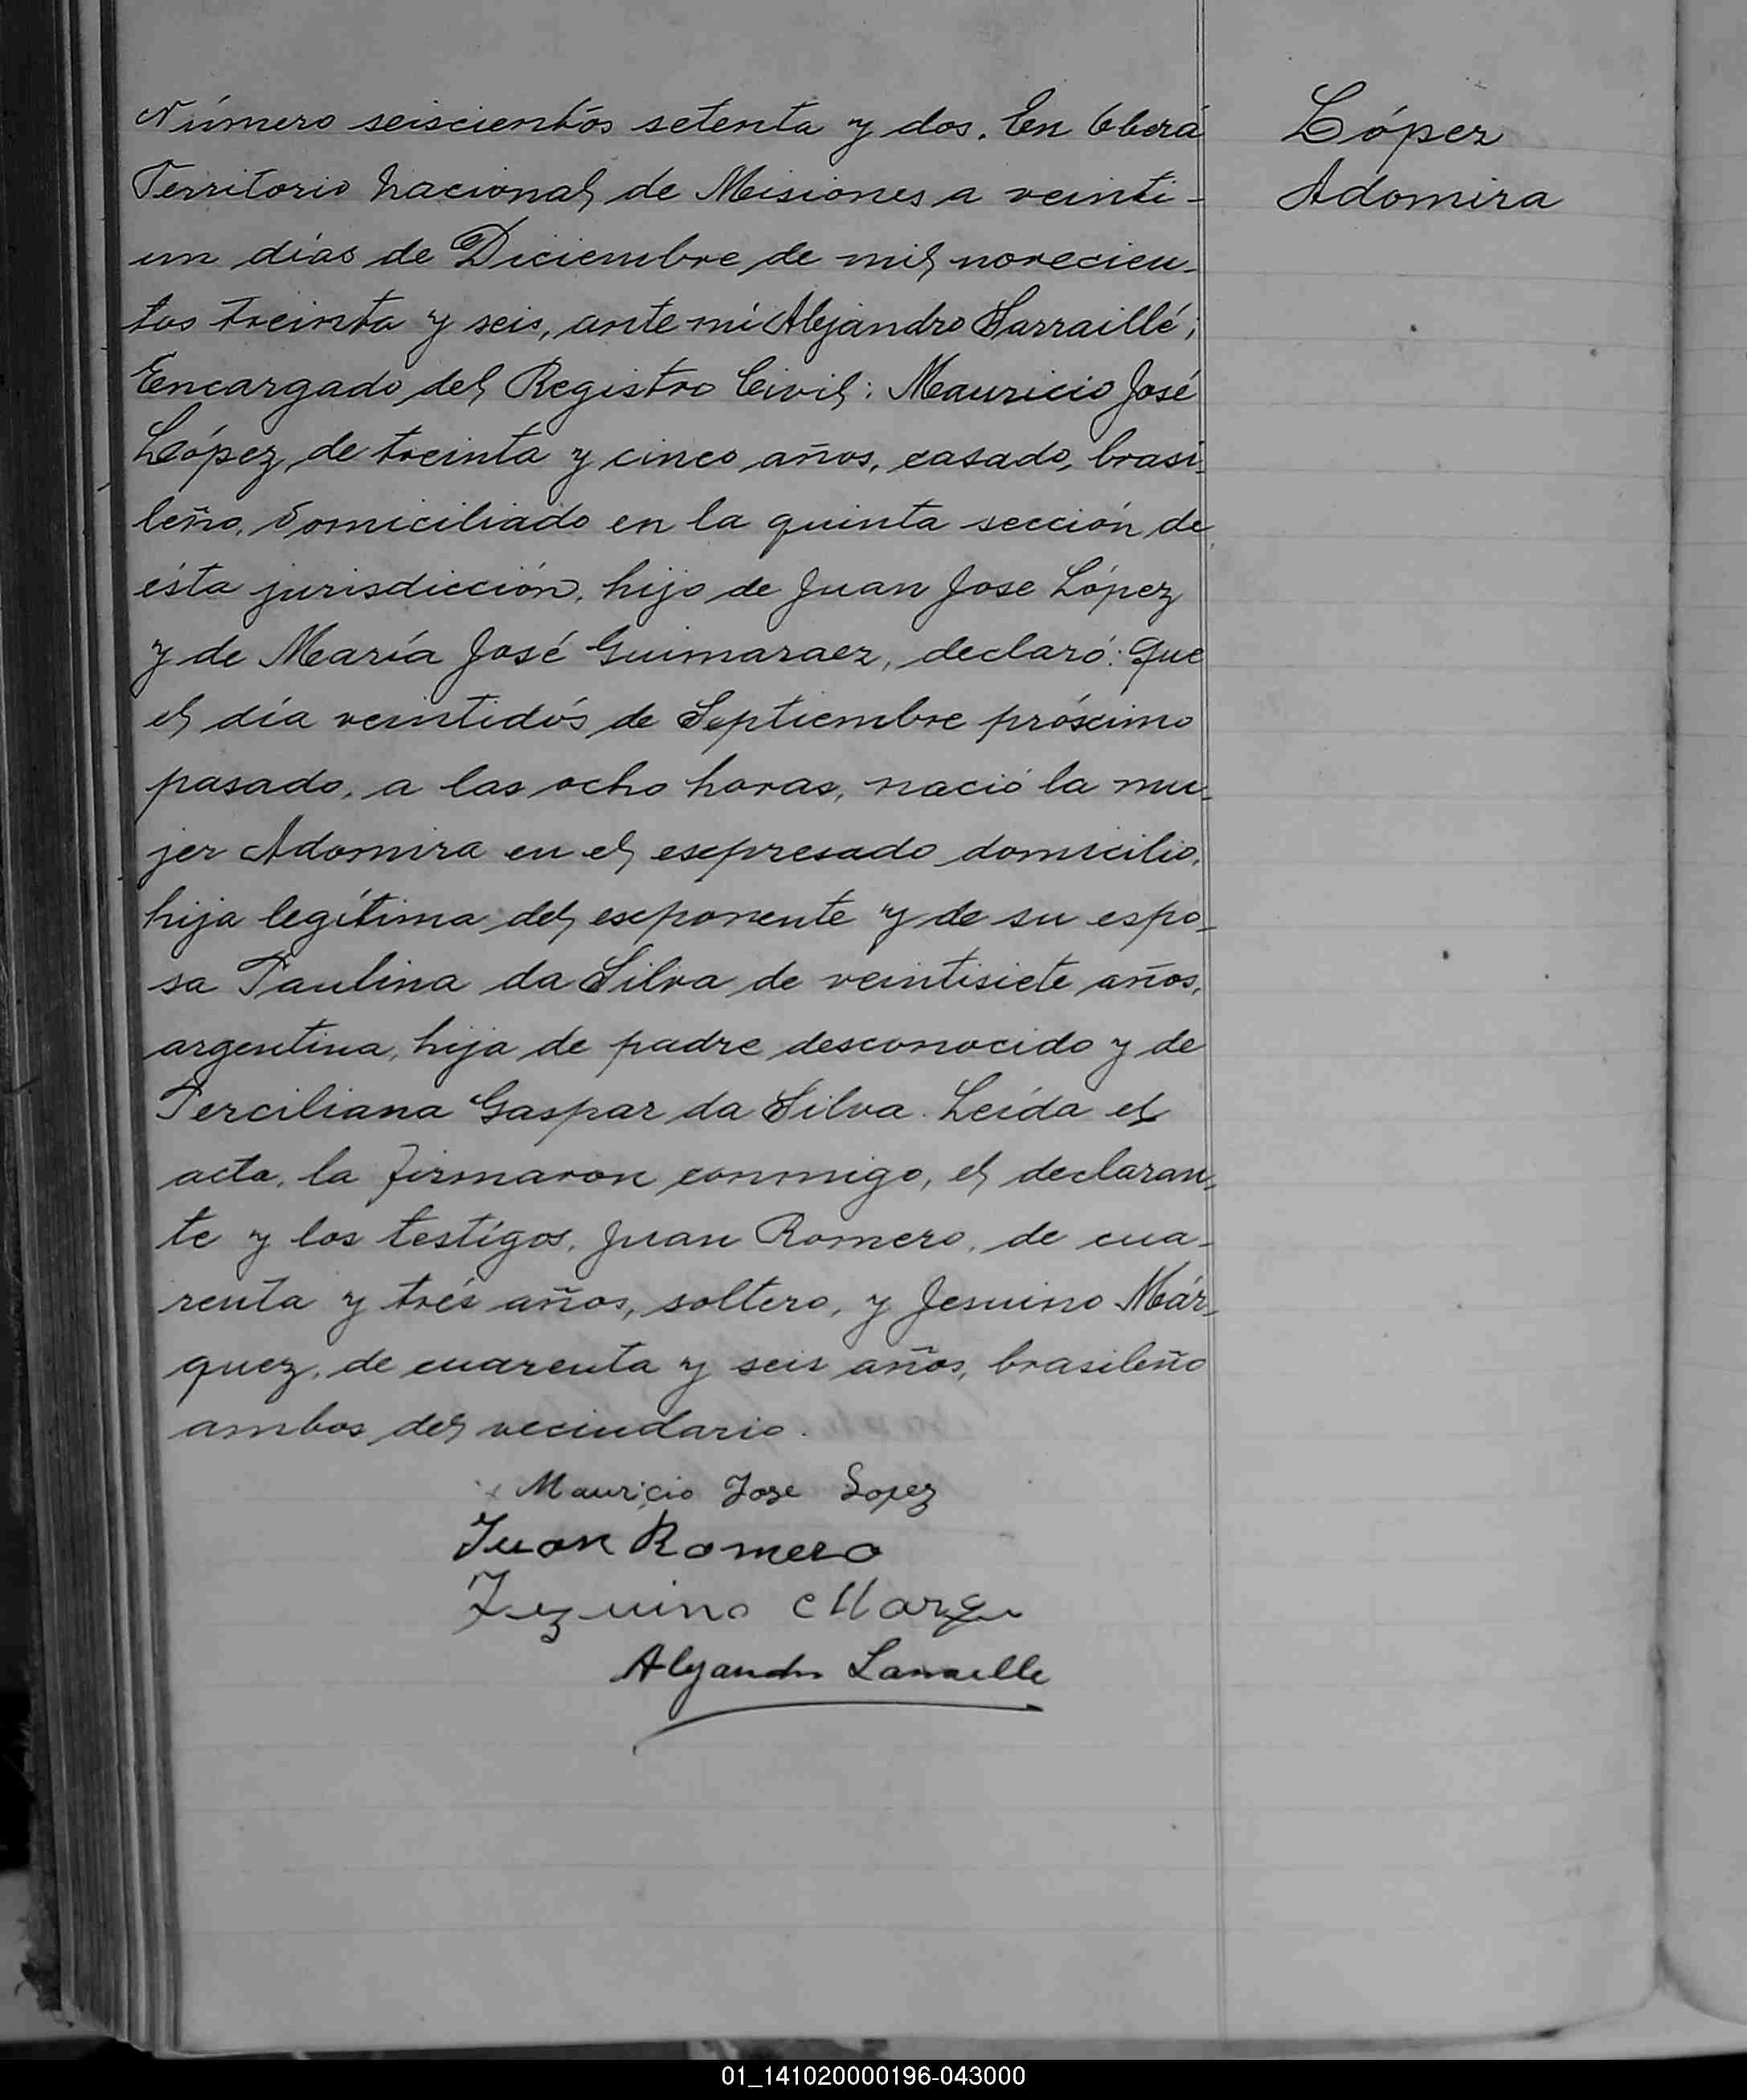 Número seiscientos setenta y dos. En Oberá
Territorio Nacional de Misiones a veinti-
un días de Diciembre de mil novecien-
tos treinta y seis, ante mi Alejandro Sarraillé;
Encargado del Registro Civil: Mauricio José
López, de treinta y cinco años, casado, brasi-
leño, domiciliado en la quinta sección de
ésta jurisdicción, hijo de Juan Jose López
y de María José Guimaraez, declaró: Que
el día veintidós de Septiembre próximo
pasado, a las ocho horas, nació la mu-
jer Adomira en el expresado domicilio,
hija legítima del exponente y de su espo-
sa Paulina da Silva de veintisiete años,
argentina, hija de padre desconocido y de
Terciliana Gaspar da Silva. Leída el
acta, la firmaron conmigo, el declaran-
te y los testigos, Juan Romero, de cua-
renta y trés años, soltero, y Jesuino Már-
quez, de cuarenta y seis años, brasileño
ambos del vecindario.
Mauricio Jose Lopez
Juan Romero
Jezuino
Alejandro Sarraille
López
Adomira
01_141020000196-043000